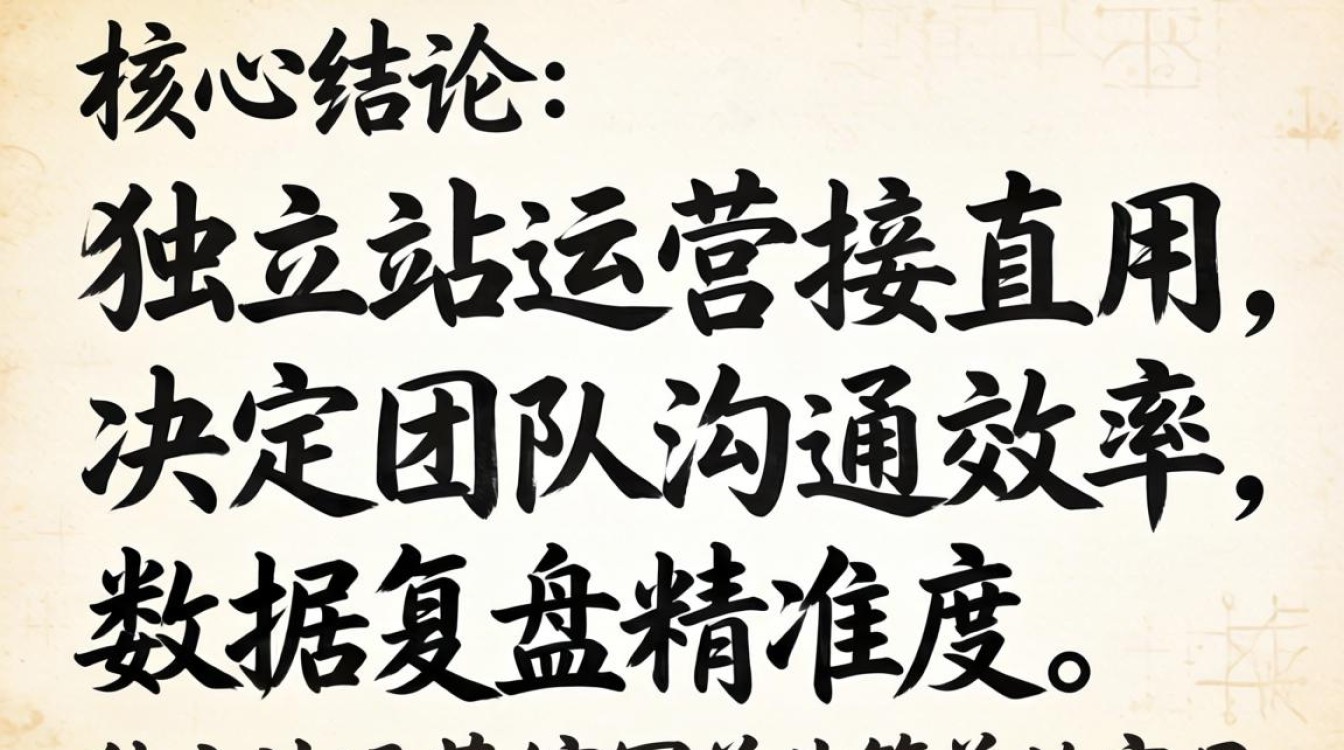 核心结论：
独立站运营接直用，
决定团队沟通效率，
数据复盘精准度。